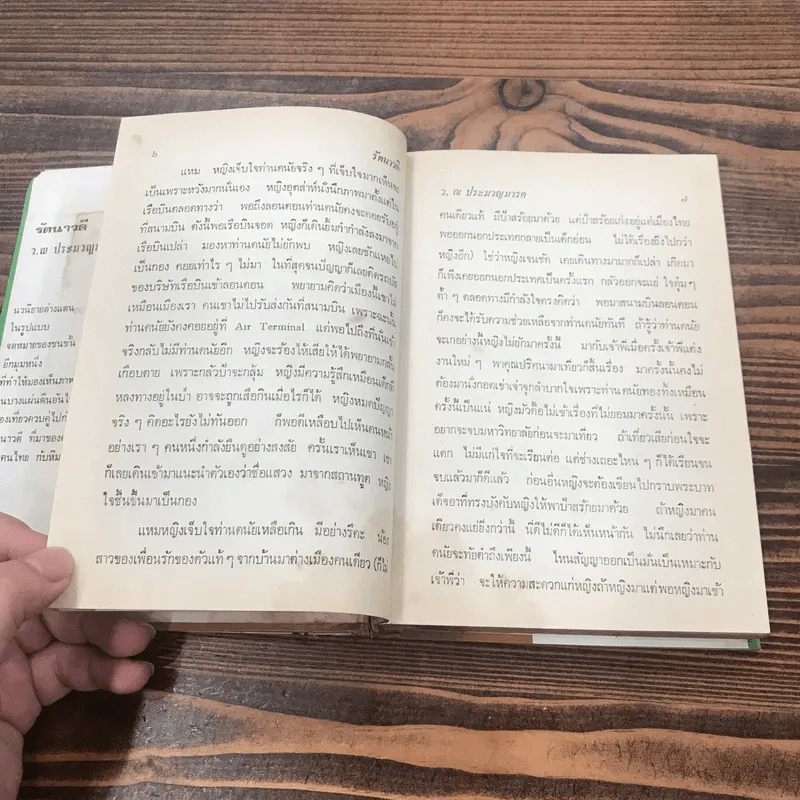 รัตนาวดี
ว.ณ ประมวญม
นวนิยายต่างแดน
ในรูปแบบ
จดหมายของชนชั้น
อีกมุมหนึ่ง
ที่ทำให้มองเห็นภาพ
นบางแผ่นดินอันไ
องเที่ยวควบคู่ไปกั
นาวดี ที่มาของ
คนไทย กับหิม
๖
รัตนาวดี
แหม หญิงเจ็บใจท่านดนัยจริง ๆ ที่เจ็บใจมากเห็นจะ
เป็นเพราะหวังมากนั่นเอง หญิงอุตส่าห์นั่งนึกภาพมาตั้งแต่ใน
เรือบินตลอดทางว่า พอถึงลอนดอน ท่านดนัยคงจะคอยรับอยู่
ที่สนามบิน ดังนั้นพอเรือบินจอด หญิงก็เดินยิ้มก๋ากำลังลงมาจาก
เรือบินเปล่า มองหาท่านดนัยไม่ยักพบ หญิงเลยชักแหยไป
เป็นกอง คอยเท่าไร ๆ ไม่มา ในที่สุดจนปัญญาก็เลยติดรถเมล์
ของบริษัทเรือบินเข้าลอนดอน พยายามคิดว่าเมืองนี้เขาไม่
เหมือนเมืองเรา คนเขาไม่ไปรับส่งกันที่สนามบิน เพราะฉะนั้น
ท่านดนัยยังคงคอยอยู่ที่ Air Terminal แต่พอไปถึงที่นั่นเข้า
จริงกลับไม่มีท่านดนัยอีก หญิงจะร้องไห้เสียให้ได้พยายามกลั้น
เกือบตาย เพราะกลัวป้าจะกลุ้ม หญิงมีความรู้สึกเหมือนเด็กที่
หลงทางอยู่ในป่า อาจจะถูกเสือกินเมื่อไรก็ได้ หญิงหมดปัญญา
จริง ๆ คิดอะไรยังไม่ทันออก ก็พอดีเหลือบไปเห็นคนหน้า
อย่างเรา ๆ คนหนึ่งกำลังยืนดูอย่างสงสัย ครั้นเราเห็นเขา เขา
ก็เลยเดินเข้ามาแนะนำตัวเองว่าชื่อแสวง มาจากสถานทูต หญิง
ใจชื้นขึ้นมาเป็นกอง
แหมหญิงเจ็บใจท่านดนัยเหลือเกิน มีอย่างรึคะ น้อง
สาวของเพื่อนรักของตัวแท้ ๆ จากบ้านมาต่างเมืองคนเดียว (ก็ไม่
ว. ณ ประมวญมารค
๗
คนเดียวแท้ มีป้าสร้อยมาด้วย แต่ป้าสร้อยเก่งอยู่แต่เมืองไทย
พอออกนอกประเทศกลายเป็นเด็กอ่อน ไม่ได้เรื่องยิ่งไปกว่า
หญิงอีก) ใช่ว่าหญิงเจนชัด เคยเดินทางมามากก็เปล่า เกิดมา
ก็เพิ่งเคยออกนอกประเทศเป็นครั้งแรก กลัวออกจะแย่ ใจตุ้มๆ
ต้ำ ๆ ตลอดทางมีกำลังใจตรงคิดว่า พอมาสนามบินลอนดอน
ก็คงจะได้รับความช่วยเหลือจากท่านดนัยทันที ถ้ารู้ว่าท่านดนัย
จะเกอย่างนี้หญิงไม่ยักมาครั้งนี้ มากับเจ้าพี่เมื่อครั้งเจ้าพี่แต่ง
งานใหม่ ๆ พาคุณปริศนามาเที่ยวก็สิ้นเรื่อง มาครั้งนั้นคงไม่
ต้องมานั่งกอดเข่าเจ่าจุกลำบากใจเพราะท่านดนัยทอดทิ้งเหมือน
ครั้งนี้เป็นแน่ หญิงมัวดื้อไม่เข้าเรื่องที่ไม่ยอมมาครั้งนั้น เพราะ
อยากจะจบมหาวิทยาลัยก่อนจะมาเที่ยว ถ้าเที่ยวเสียก่อนใจจะ
แตก ไม่มีแก่ใจที่จะเรียนต่อ แต่ช่างเถอะไหน ๆ ก็ได้เรียนจน
จบแล้วมาก็ดีแล้ว ก่อนอื่นหญิงจะต้องเขียนไปกราบพระบาท
เด็จอาที่ทรงบังคับหญิงให้พาป้าสร้อยมาด้วย ถ้าหญิงมาคน
เดียวคงแย่ยิ่งกว่านี้ นี่ดีไม่ดีก็ได้เห็นหน้ากัน ไม่นึกเลยว่าท่าน
ดนัยจะทำถึงเพียงนี้ ไหนสัญญาออกเป็นมั่นเป็นเหมาะกับ
เจ้าพี่ว่า จะให้ความสะดวกแก่หญิงถ้าหญิงมาแต่พอหญิงมาเข้า